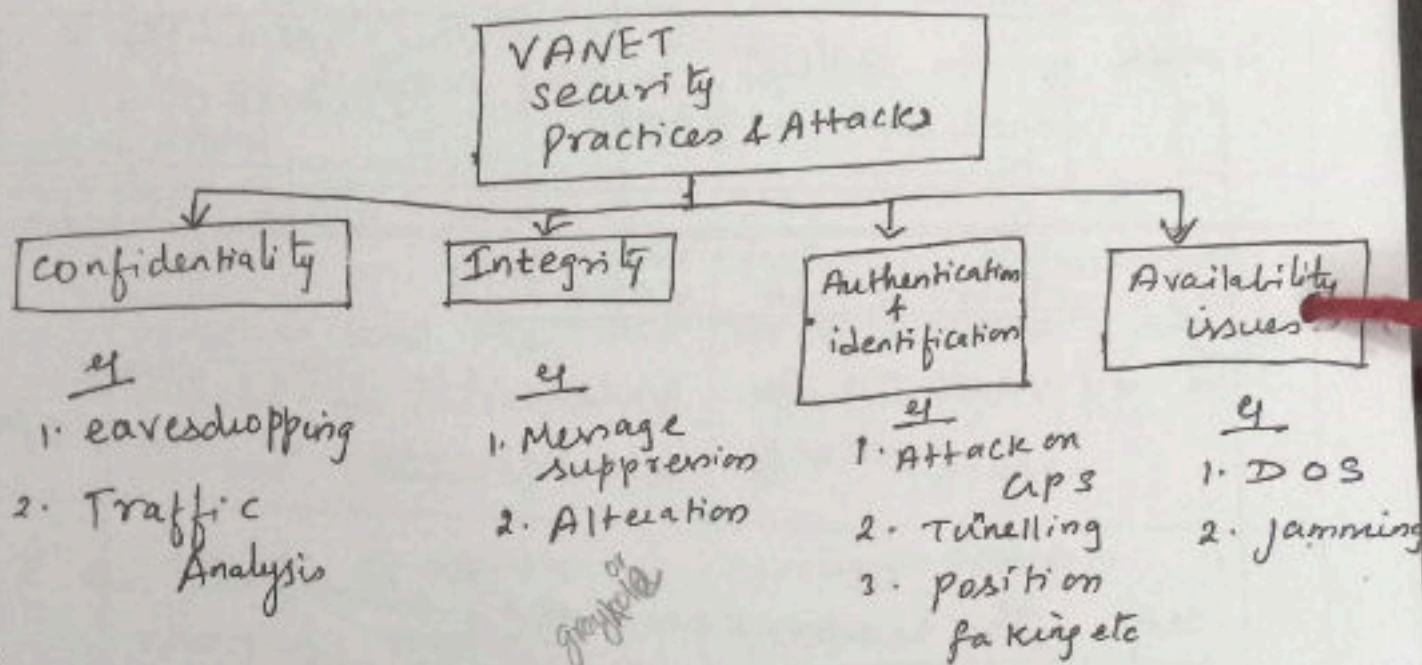 VANET
security
Practices & Attacks
Confidentiality
eg
1. eavesdropping
2. Traffic
Analysis
Integrity
eg
1. Message
suppression
2. Alteration
Authentication
&
identification
eg
1. Attack on
GPS
2. Tunelling
3. Position
faking etc
Availability
issues
eg
1. DOS
2. Jamming
or
grayhole